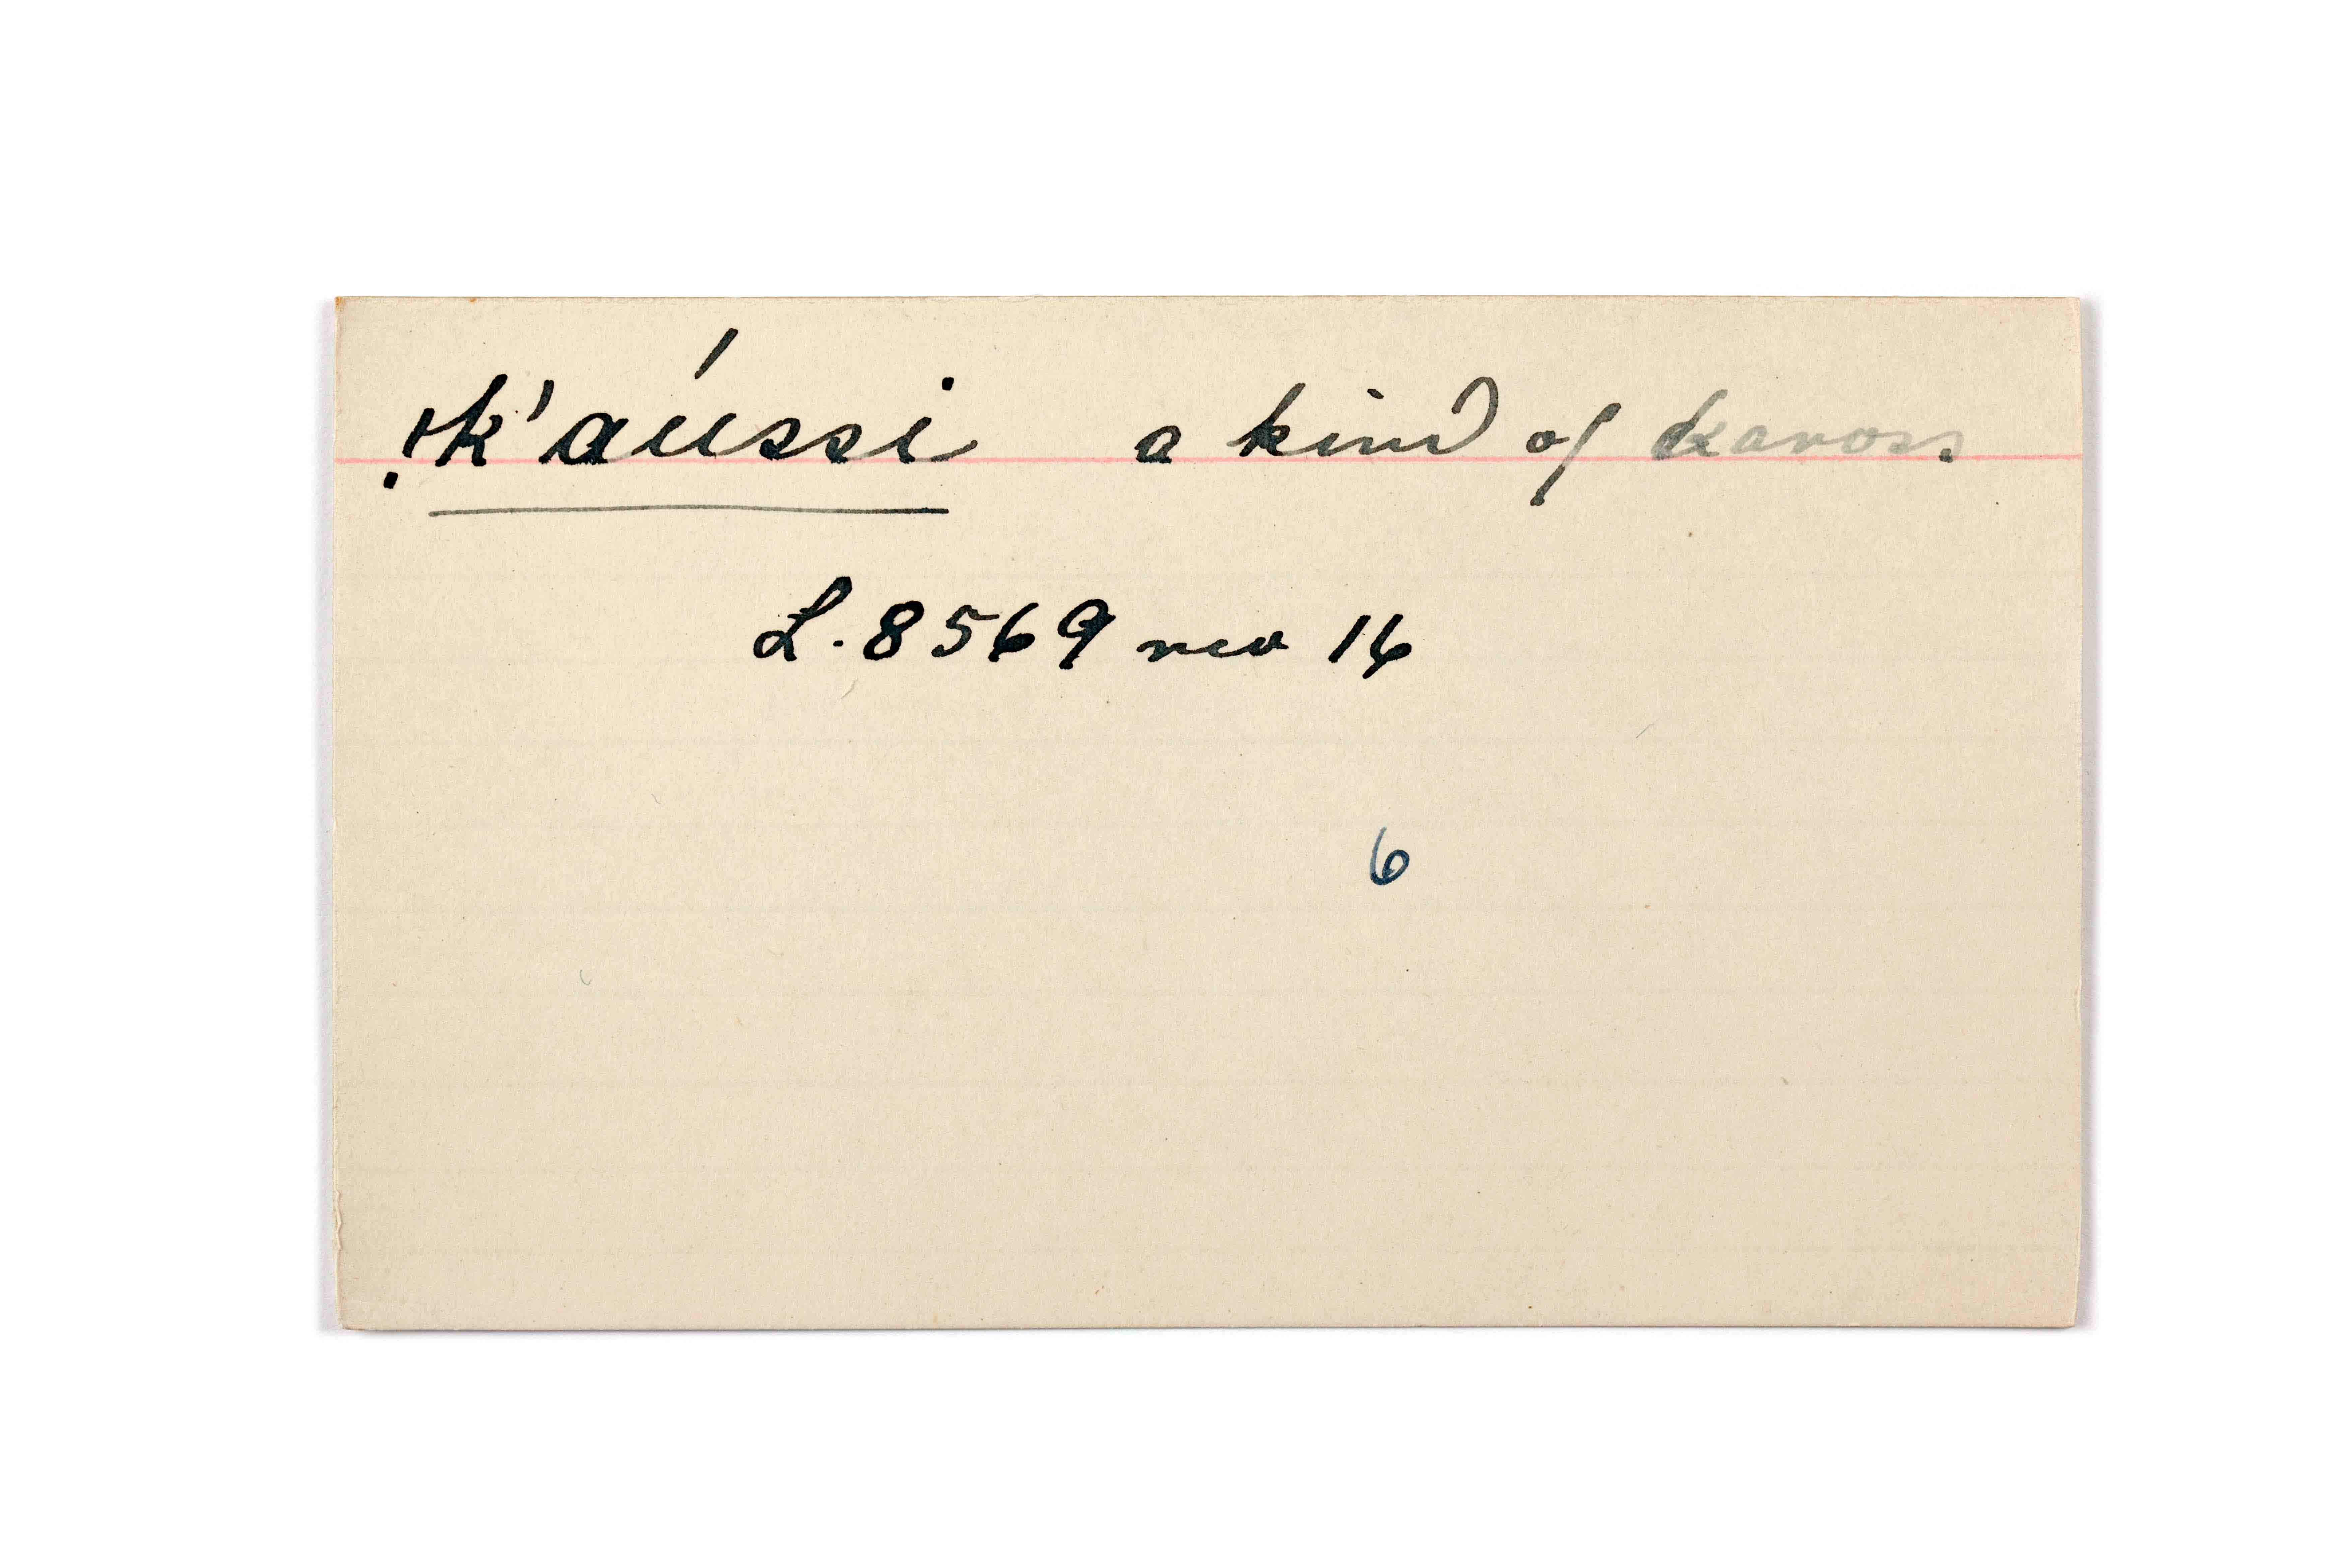 !k'aússi a kind of kaross.
L. 8569 rev 16
6